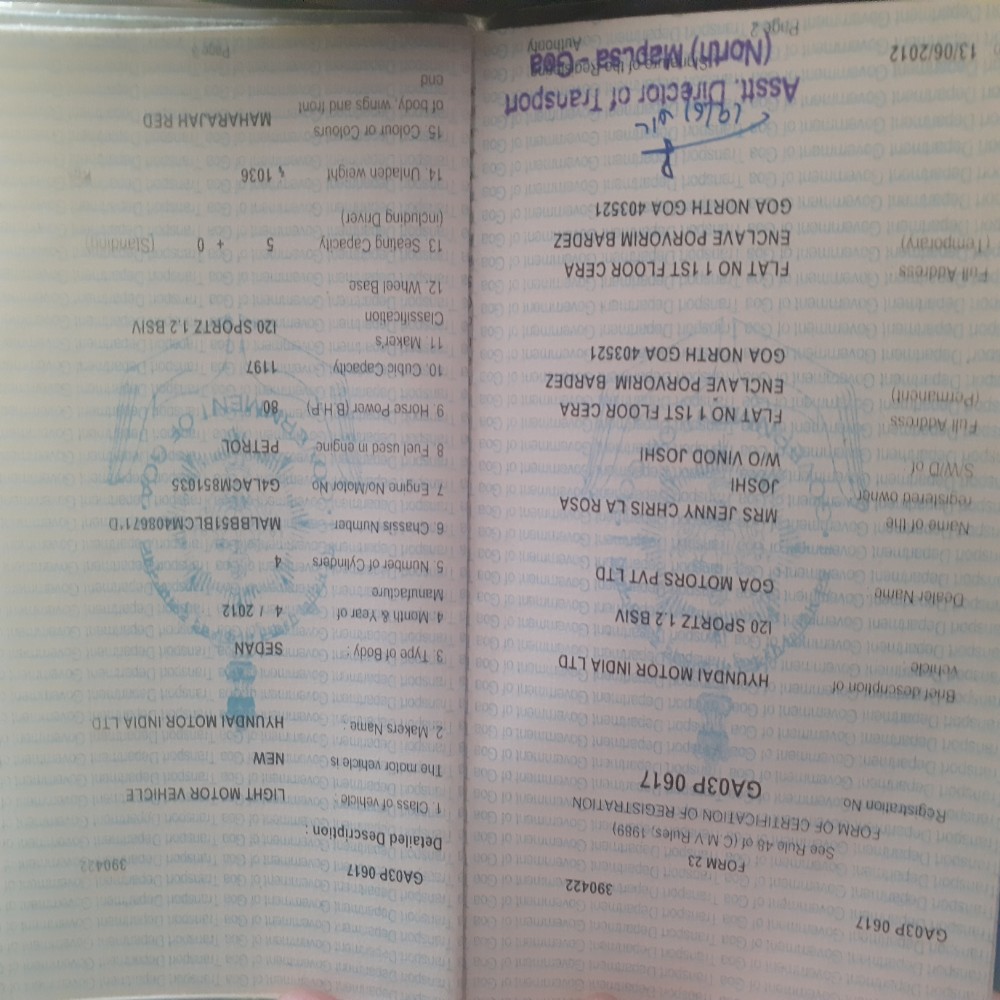 GA03P 0617
390422
FORM 23
See Rule 48 of (C.M.V.Rules, 1989)
FORM OF CERTIFICATION OF REGISTRATION
Registration No GA03P 0617
Brief description of HYUNDAI MOTOR INDIA LTD
vehicle:
I20 SPORTZ 1.2 BSIV
Dealer Name GOA MOTORS PVT LTD
Name of the MRS JENNY CHRIS LA ROSA
registered owner JOSHI
S/W/D of W/O VINOD JOSHI
Full Address FLAT NO 1 1ST FLOOR CERA
(Permanent) ENCLAVE PORVORIM BARDEZ
GOA NORTH GOA 403521
Full Address FLAT NO 1 1ST FLOOR CERA
(Temporary) ENCLAVE PORVORIM BARDEZ
GOA NORTH GOA 403521
Asstt. Director of Transport
Signature of the Registering
(North) Mapusa - Goa
Authority
13/06/2012
Page 2
GA03P 0617
390422
Detailed Description :
1 Class of vehicle : LIGHT MOTOR VEHICLE
The motor vehicle is NEW
2. Makers Name : HYUNDAI MOTOR INDIA LTD
3. Type of Body : SEDAN
4. Month & Year of 4 / 2012
Manufacture
5. Number of Cylinders 4
6. Chassis Number MALBB51BLCM408671*D
7. Engine No/Motor No G4LACM851035
8. Fuel used in engine PETROL
9. Horse Power (B.H.P) 80
10. Cubic Capacity 1197
11. Maker's I20 SPORTZ 1.2 BSIV
Classification
12. Wheel Base
13 Seating Capacity 5 + 0 (Standing)
(including Driver)
14. Unladen weight 1036
15. Colour or Colours MAHARAJAH RED
of body, wings and front
end
Page 3